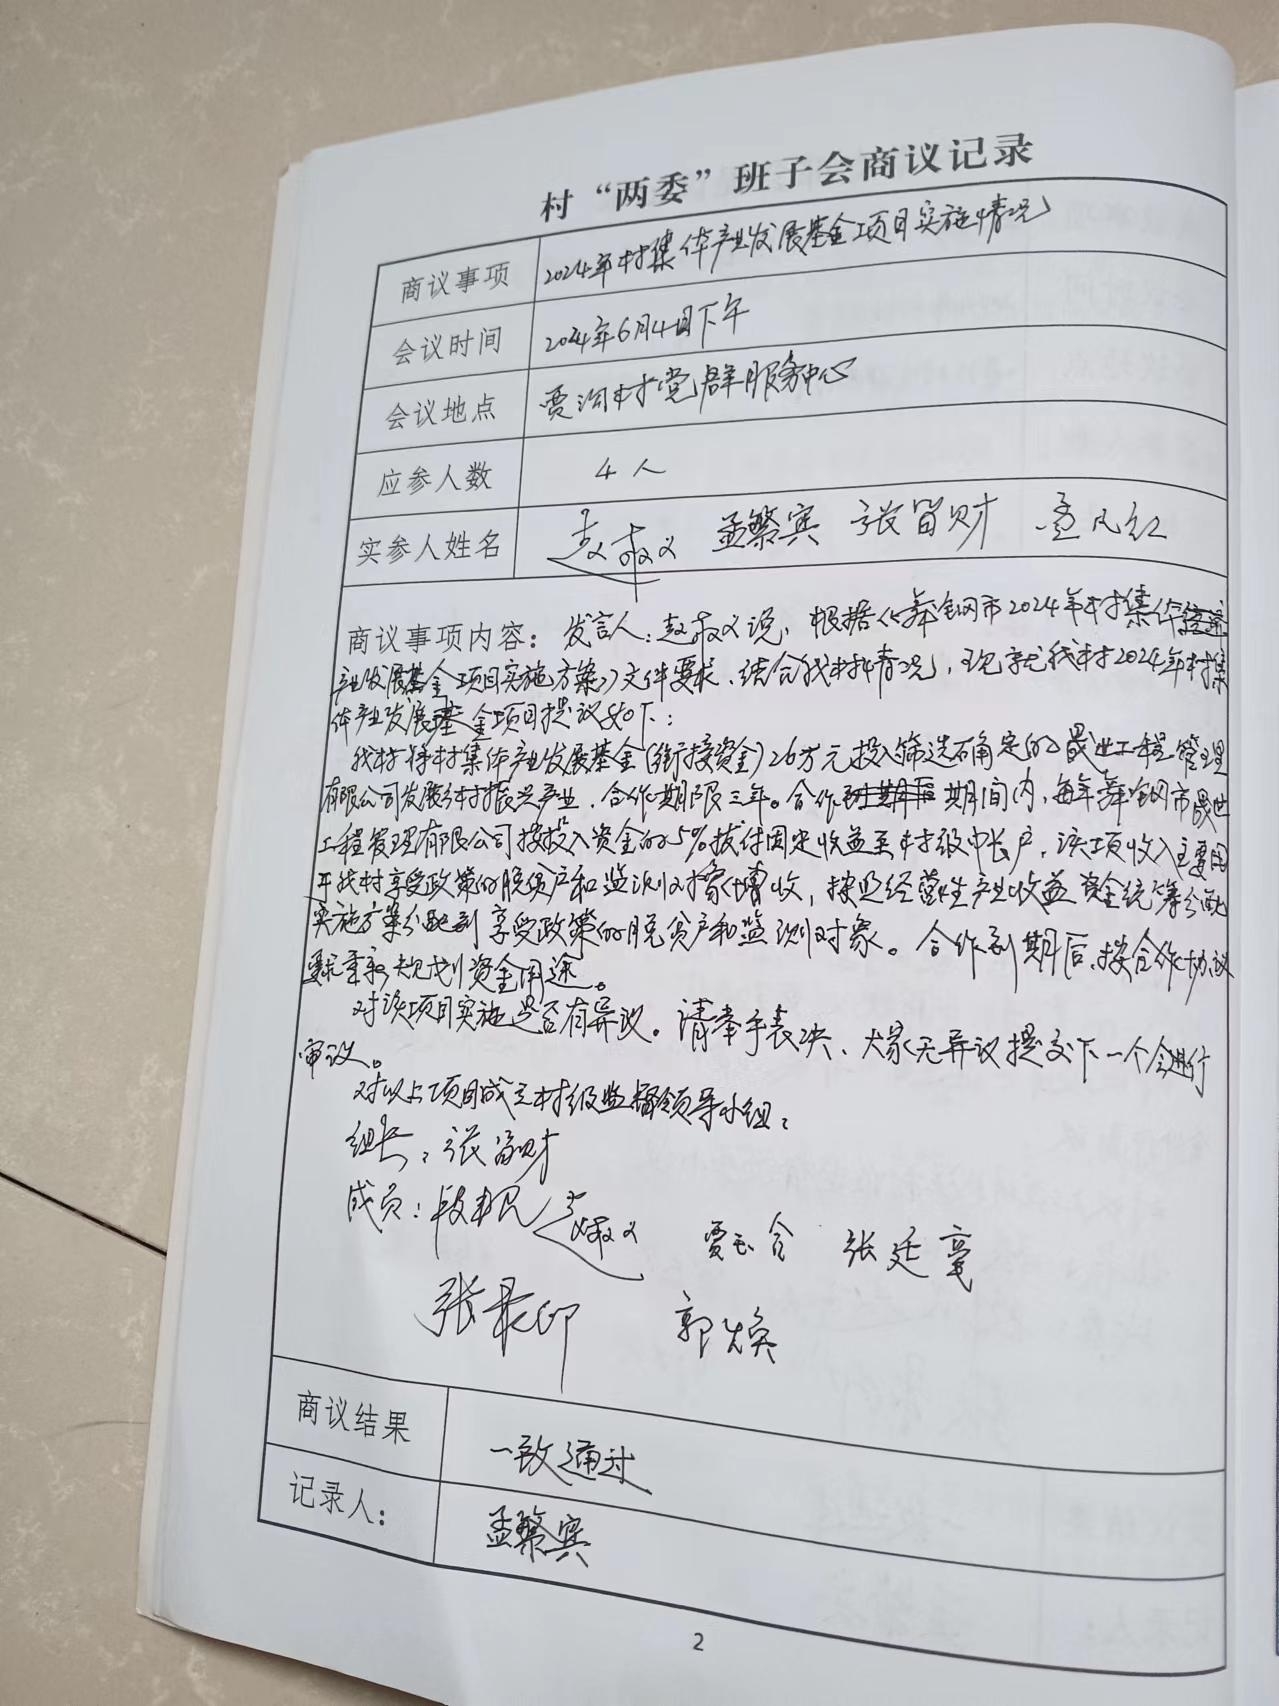 村“两委”班子会商议记录
商议事项 2024年村集体产业发展基金项目实施情况
会议时间 2024年6月4日下午
会议地点 贾沟村党群服务中心
应参人数 4人
实参人姓名 赵叔义 孟繁宾 张留财 孟凡红
商议事项内容：发言人：赵叔义说，根据《舞钢市2024年村集体
产业发展基金项目实施方案》文件要求，结合我村情况，现就我村2024年村集
体产业发展基金项目提议如下：
我村将村集体产业发展基金（衔接资金）26万元投入筛选确定的晟世工程管理
有限公司发展乡村振兴产业，合作期限三年。合作期间内，每年舞钢市晟世
工程管理有限公司按投入资金的5%拔付固定收益至村级中长户，该项收入主要用
于我村享受政策的脱贫户和监测对象增收，按照经营性产业收益资金统筹分配
实施方案分配到享受政策的脱贫户和监测对象。合作到期后，按合作协议
要求重新规划资金用途。
对该项目实施是否有异议。请举手表决，大家无异议提交下一个会进行
审议。
对以上项目成立村级监督领导小组：
组长：张留财
成员：段耕民 赵叔义 贾玉合 张廷毫
张最印 郭焕
商议结果 一致通过
记录人： 孟繁宾
2